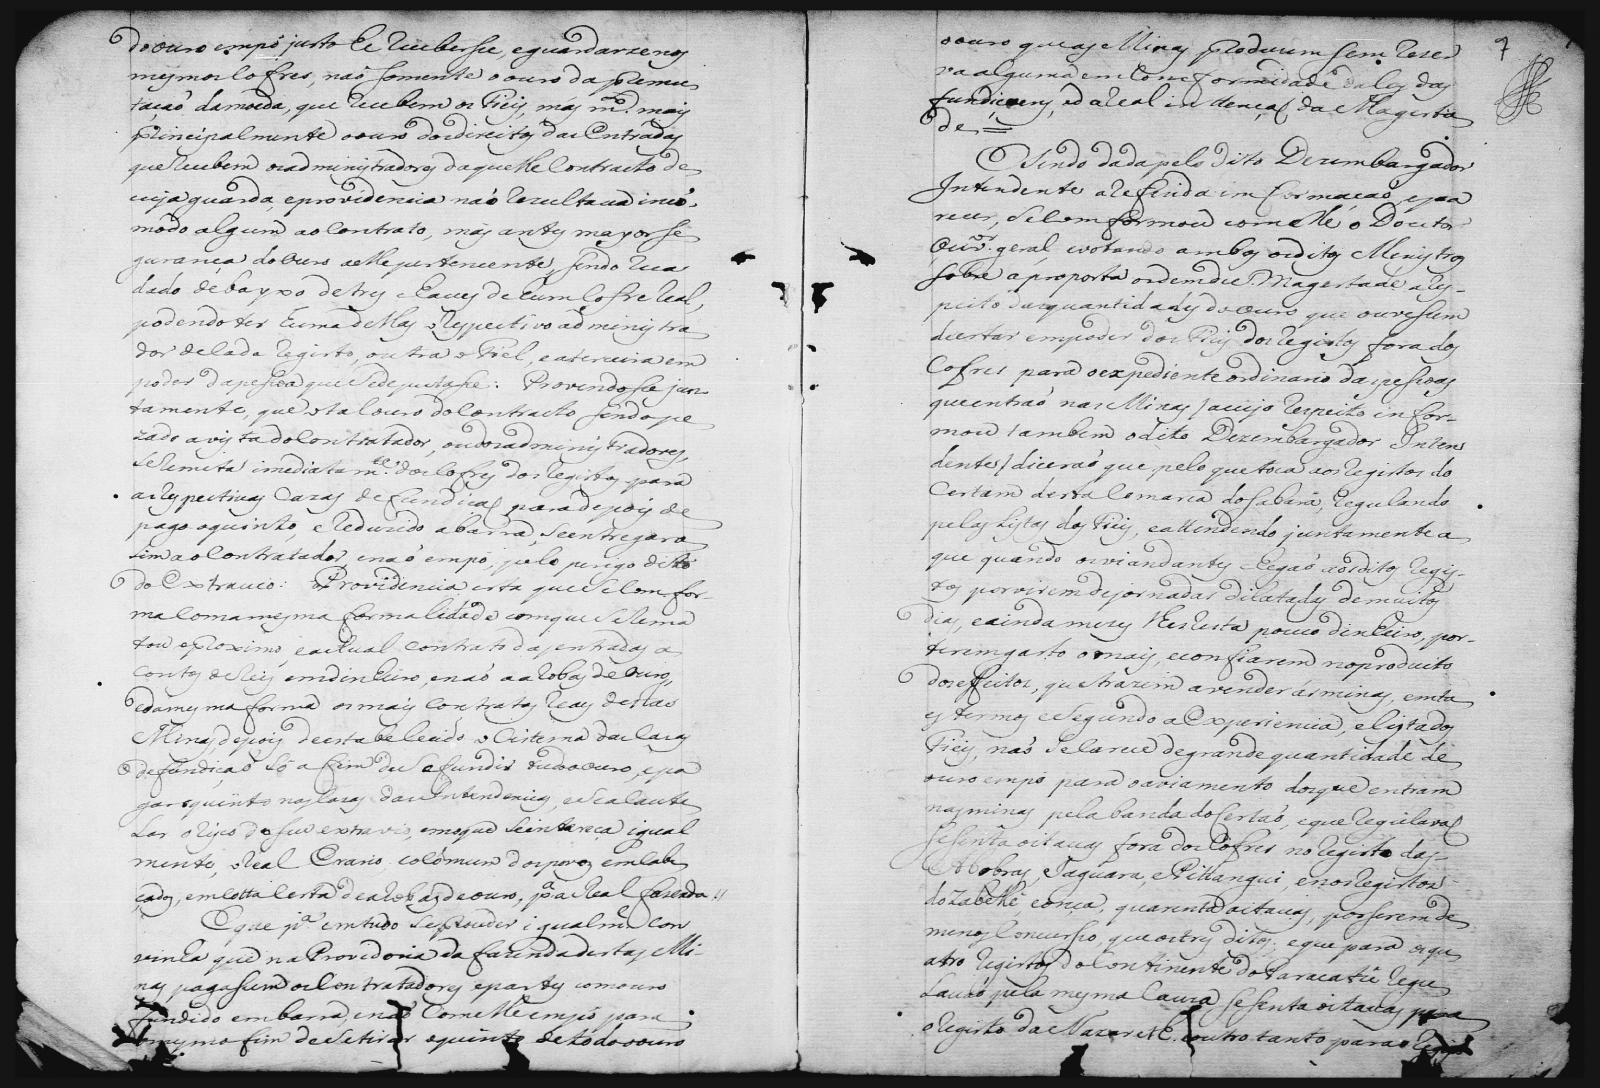 do ouro em pó justo he receberse, eguardarsenos
mesmos Cofres, naõ somente o ouro da permu
taçaõ damoeda, que recebem os Fieis, más m.to mais
principalmente o ouro dos direitos das Entradas
que recebem os administradores daquelle Contracto de
cuja guarda, eprovidencia naõ rezultava incó-
módo algum ao Contrato, más antes mayor se
gurança do ouro aelle pertencente, sendo guar
dado debayxo detres chaves de hum Cofre Real,
podendo ter huma dellas o respectivo administra
dor decada registo, outra o Fiel, e aterceira em
poder dapesoa que sedeputasse: Provendose jun
tamente, que o tal ouro do Contracto sendo pe
zado avista do Contratador, ou dos administradores,
se remeta imediatam.te dos Cofres dos registos para
as respectivas Cazas de fundiçaõ, para depois de
pago o quinto, e reduzido a barra, se entregar a
sim ao Contratador, enaõ empó, pelo perigo disto
do Extravio: Providencia esta que se Confor-
ma Com a mesma formalidade com que se rema
tou o proximo, e actual contrato das entradas a
Contos de reis em dinheiro, enaõ a arobas de ouro,
e da mesma forma os mais Contratos reays destas
Minas depois de estabelecido o Sistema das Cazas
de fundiçaõ só a fim de se fundir todo o ouro, e pa
gar o quinto nas Cazas das Intendencias, e se acaute
Lar o risco de seu extravio, em que se intereça igual
mente, o Real Erario, e o Cómum dos povos em Cabe
çados, em Cotta Certa de arobas de ouro, p.a a Real fazenda.
E que p.a em tudo se proceder igualm.te Con
vinha que na Provedoria da fazenda destas Mi-
nas pagasem os Contratadores e partes com ouro
fundido em barra, enaõ Com elle empó para
o mesmo fim de se tirar o quinto de todo o ouro
7
o ouro que as Minas produzem sem rezer
va alguma em Comformidade da Ley das
fundiçoens, e da Real intençaõ da Magesta
de =
E sendo dada pelo dito Dezembargador
Intendente a referida imformaçaõ, e pa
recer, se Comformou com elle o Doutor
Ouv.or geral, e votando ambos os ditos Ministros
sobre a proposta ordem de S. Magestade a res-
peito das quantidades de ouro que ouvesem
de estar em poder dos Fieis dos registos fora dos
Cofres para o expediente ordinario das pesoas
que entraõ nas Minas / a cujo respeito infor-
mou tambem o dito Dezembargador Inten
dente / diceraõ que pelo que toca aos registos do
Certam desta Comarca do Sabará, regulando
pelas Listas dos Fieis, e attendendo juntamente a
que quando os viandantes chegaõ aos ditos regis-
tos por virem de jornadas dilatadas de muitos
dias, e ainda mezes lhes resta pouco dinheiro, por-
terem gasto o mais, e confiarem no producto
dos effeitos, que trazem a vender ás minas, em ta
es termos e segundo a Experiencia, e listas dos
Fieis, naõ se Carece de grande quantidade de
ouro em pó para o aviamento dos que entram
nas minas pela banda do Certaõ, e que regulavaõ
sesenta oitavas fora dos Cofres no registo das-
Abobras, Jaguara, e Pitangui, e nos registos
do Zabelhé, e onça, quarenta oitavas, por serem de
menos Concurso, que os tres ditos; e que para os qu
atro registos do Continente do Paracatú regu
Lavaõ pela mesma Cauza sesenta oitavas, para
o registo da Nazareth e outro tanto para o regis